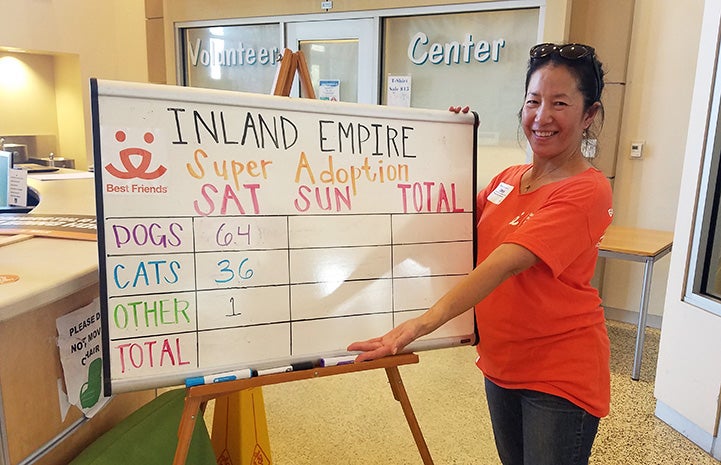 Volunteer Center
T-Shirt
Sale $15
INLAND EMPIRE
Super Adoption
Best Friends
SAT SUN TOTAL
DOGS 64
CATS 36
OTHER 1
TOTAL
PLEASE D
NOT MOV
CHAIR